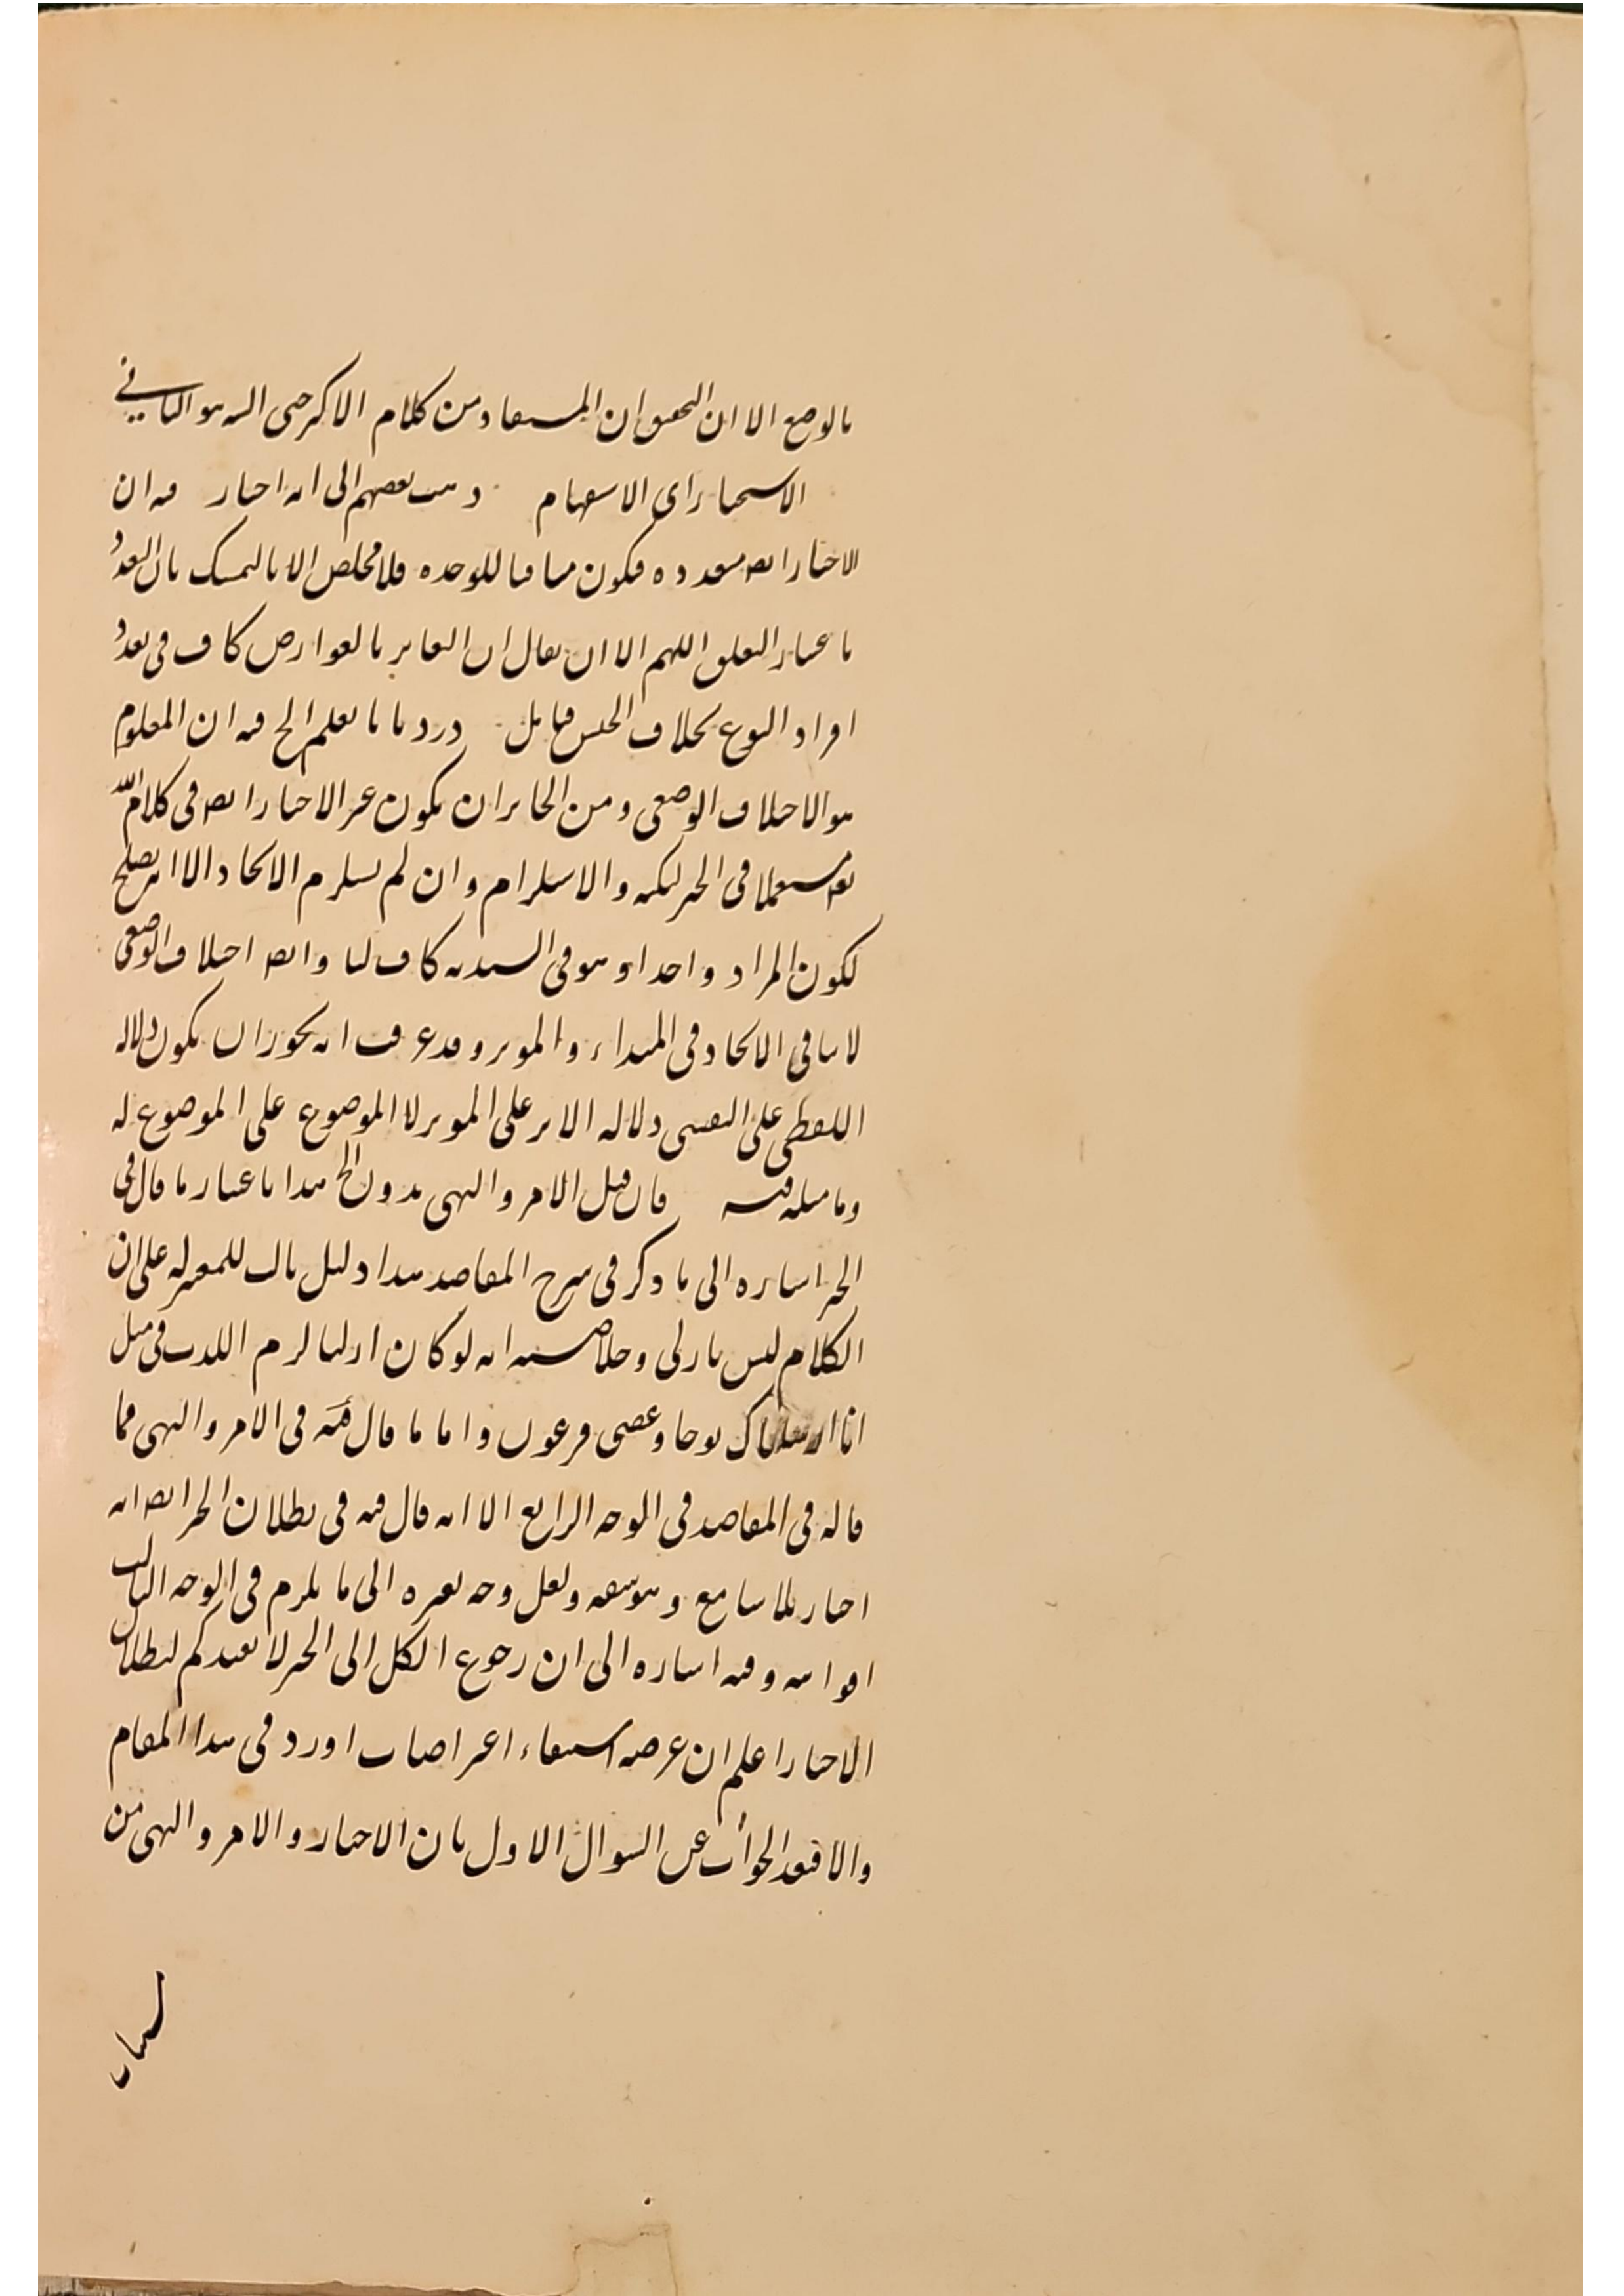 بالوضع الا ان التحقيق ان المستفاد من كلام الاكثر حتى السيد هو الثاني
الاستخبار اى الاستفهام وذهب بعضهم الى انه اخبار فيه ان
الاخبار ايضا متعدده فيكون منافيا للوحده فلا مخلص الا بالتمسك بان التعدد
باعتبار التعلق اللهم الا ان يقال ان التغاير بالعوارض كاف فى تعدد
افراد النوع بخلاف الجنس فتامل ورد بانا نعلم الخ فيه ان المعلوم
هو الاختلاف الوضعى ومن الجائز ان يكون غير الاخبار ايضا فى كلام الله
تعه مستعملا فى الخبر لنكته والاستلزام وان لم يستلزم الاتحاد الا انه يصلح
لكون المراد واحدا وهو فى السنديه كاف لنا وايضا اختلاف الوضعى
لا ينافى الاتحاد فى المبداء والموثر وقد عرفت انه يجوز ان يكون دلاله
اللفظى على النفسى دلاله الاثر على الموثر لا الموضوع على الموضوع له
وما مثله فيه فان قيل الامر والنهى بدون الخ هذا باعتبار ما قال فى
الخبر اشاره الى ما ذكر فى شرح المقاصد هذا دليل ثالث للمعتزله على ان
الكلام ليس بازلى وخلاصته انه لو كان ازليا لزم الكذب فى مثل
انا ارسلناك نوحا وعصى فرعون واما ما قال فيه فى الامر والنهى فما
قاله فى المقاصد فى الوجه الرابع الا انه قال فيه فى بطلان الخبر ايضا انه
اخبار بلا سامع وهو سفه ولعل وجه تغيره الى ما يلزم فى الوجه الثالث
وفيه اشاره الى ان رجوع الكل الى الخبر لا يفيدكم لبطلان
الاخبار اعلم ان غرضه استيفاء اعتراضات اورد فى هذا المقام
والا فبعد الجواب عن السوال الاول بان الاخبار والامر والنهى من